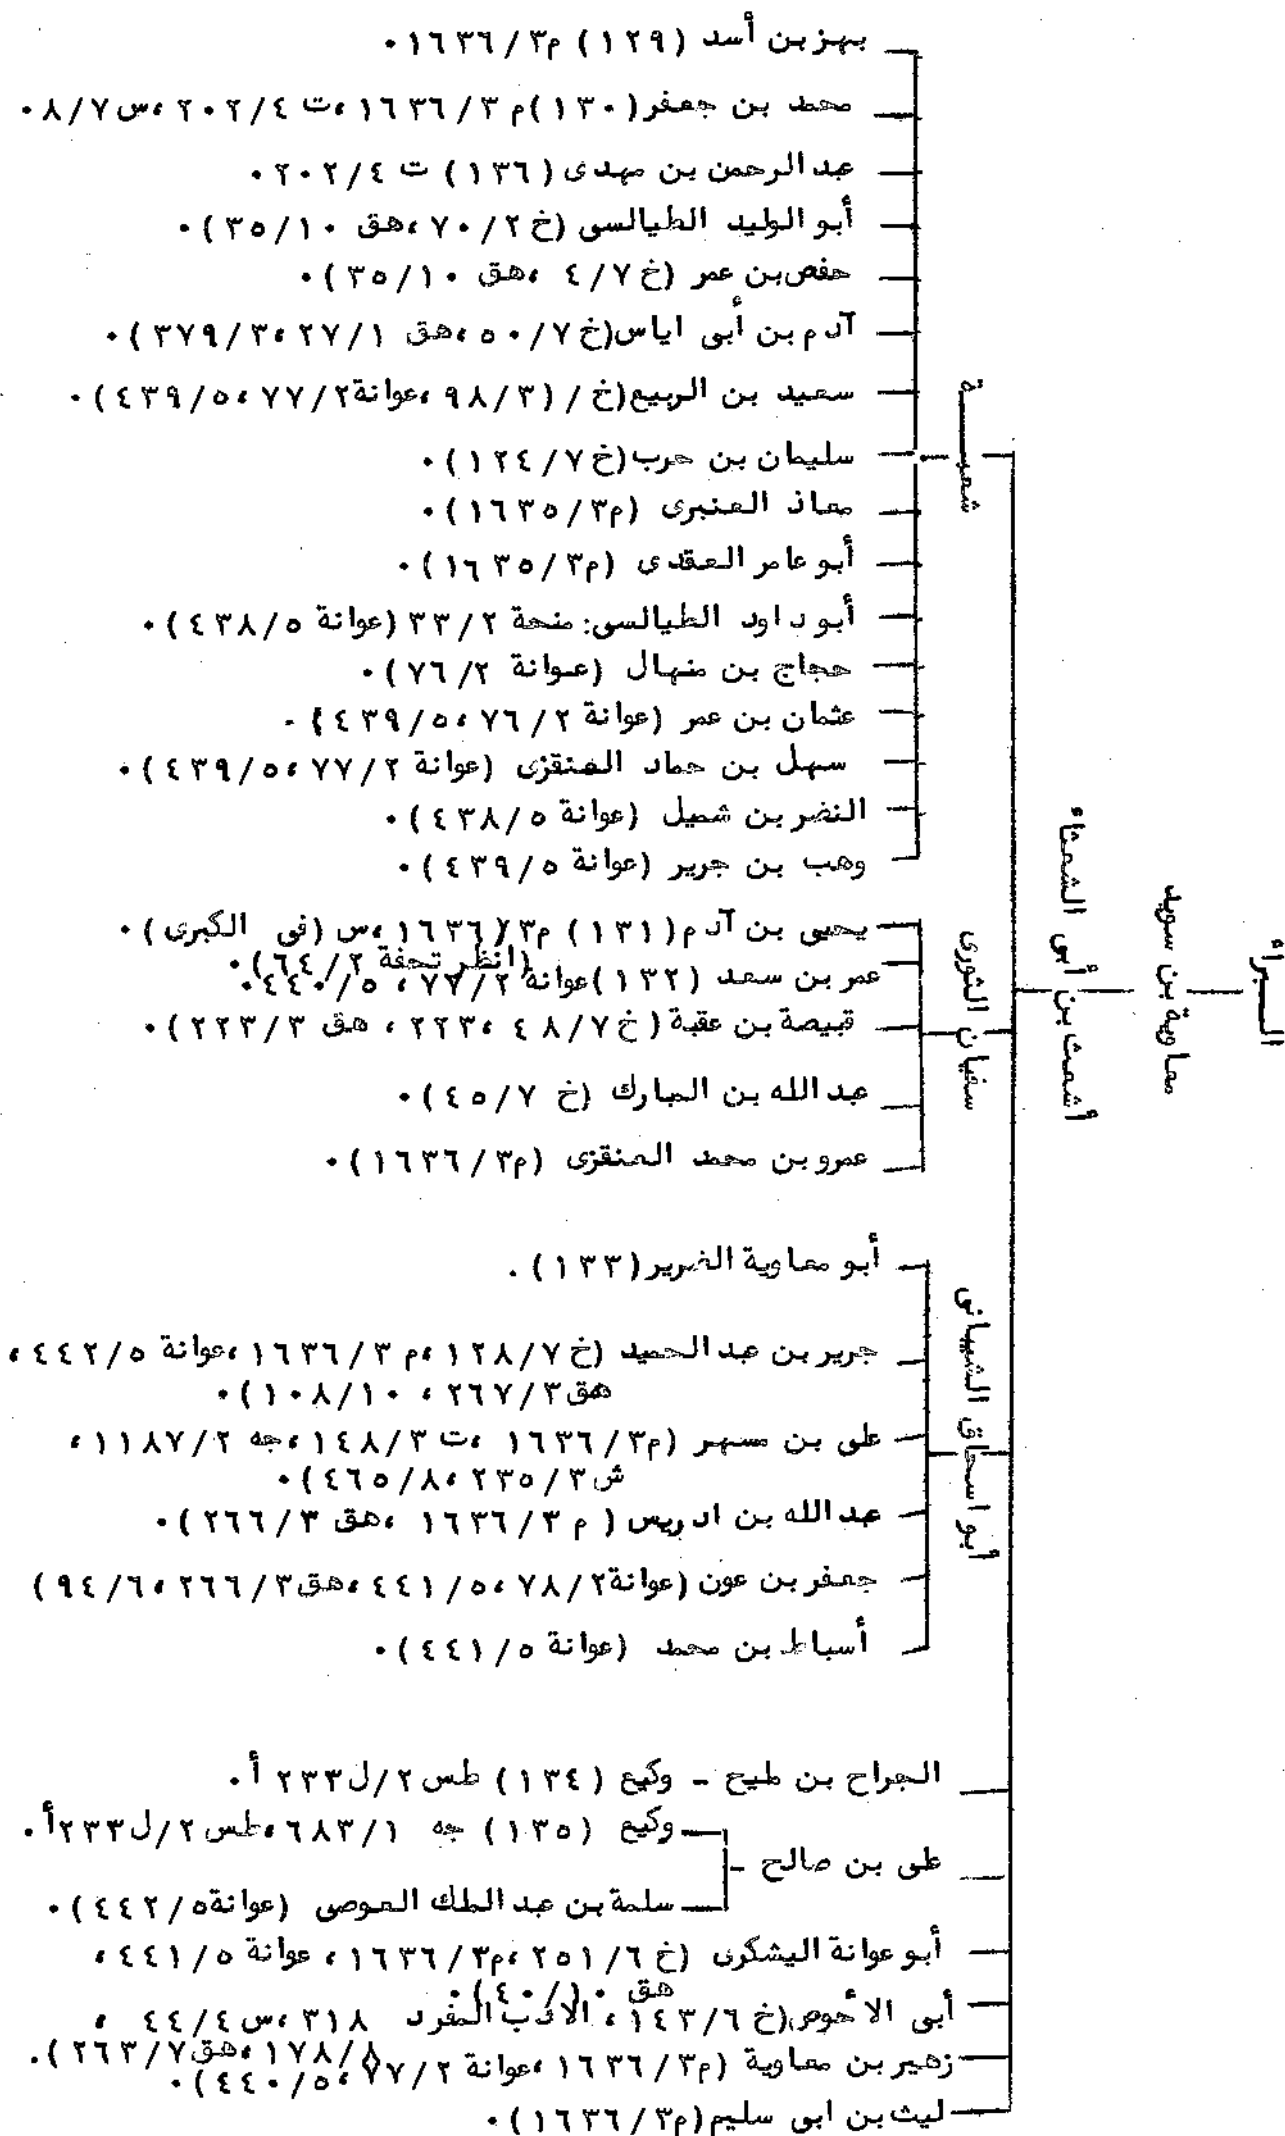 البـــراء
معاوية بن سويد
أشعث بن أبى الشعثاء
شعبـــــة
بهز بن أسد (١٢٩) م٣/١٦٣٦٠
محمد بن جعفر(١٣٠)م ٣/١٦٣٦ ،ت ٤/٢٠٢ ،س٨/٧٠
عبد الرحمن بن مهدى (١٣٦) ت ٤/٢٠٢٠
أبو الوليد الطيالسى (خ ٢/٧٠ ،هق ١٠/٣٥)٠
حفص بن عمر (خ ٧/٤ ،هق ١٠/٣٥)٠
آدم بن أبى اياس(خ ٧/٥٠ ،هق ١/٢٧ ،٣/٣٧٩)٠
سعيد بن الربيع(خ / (٣/٩٨ ،عوانة٢/٧٧ ،٥/٤٣٩)٠
سليمان بن حرب(خ ٧/١٢٤)٠
معاذ العنبرى (م٣/١٦٣٥)٠
أبو عامر العقدى (م٣/١٦٣٥)٠
أبو داود الطيالسى: منحة ٢/٣٣ (عوانة ٥/٤٣٨)٠
حجاج بن منهال (عوانة ٢/٧٦)٠
عثمان بن عمر (عوانة ٢/٧٦ ،٥/٤٣٩)٠
سهل بن حماد المنقزى (عوانة ٢/٧٧ ،٥/٤٣٩)٠
النضر بن شميل (عوانة ٥/٤٣٨)٠
وهب بن جرير (عوانة ٥/٤٣٩)٠
سفيان الثورى
يحيى بن آدم(١٣١) م٣/١٦٣٦ ،س (فى الكبرى)٠
(انظر تحفة ٢/٦٤)٠
عمر بن سعد (١٣٢)عوانة ٢/٧٧ ، ٥/٤٤٠٠
قبيصة بن عقبة (خ ٧/٤٨ ،٢٢٣ ، هق ٣/٢٢٣)٠
عبد الله بن المبارك (خ ٧/٤٥)٠
عمرو بن محمد المنقزى (م٣/١٦٣٦)٠
أبو اسحاق الشيبانى
أبو معاوية الضرير(١٣٣) .
جرير بن عبد الحميد (خ ٧/١٢٨ ،م ٣/١٦٣٦ ،عوانة ٥/٤٤٢ ،
هق ٣/٢٦٧ ، ١٠/١٠٨)٠
على بن مسهر (م٣/١٦٣٦ ،ت ٣/١٤٨ ،جه ٢/١١٨٧ ،
ش ٣/٢٣٥ ،٨/٤٦٥)٠
عبد الله بن ادريس ( م ٣/١٦٣٦ ،هق ٣/٢٦٦)٠
جعفر بن عون (عوانة٢/٧٨ ،٥/٤٤١ ،هق٣/٢٦٦ ،٦/٩٤)
أسباط بن محمد (عوانة ٥/٤٤١)٠
الجراح بن مليح - وكيع (١٣٤) طس ٢/ل ٢٣٣ أ٠
على بن صالح -
وكيع (١٣٥) جه ١/٦٨٣ ،طس ٢/ل ٢٣٣أ٠
سلمة بن عبد الملك العوصى (عوانة٥/٤٤٢)٠
أبو عوانة اليشكرى (خ ٦/٢٥١ ،م٣/١٦٣٦ ، عوانة ٥/٤٤١ ،
هق ١٠/٤٠)٠
أبى الاحوص(خ ٦/١٤٣ ، الادب المفرد ٣١٨ ،س ٤/٤٤ ،
٨/١٧٨ ،هق ٧/٢٦٣).
زهير بن معاوية (م٣/١٦٣٦ ،عوانة ٢/٧٧ ،٥/٤٤٠)٠
ليث بن ابى سليم(م٣/١٦٣٦)٠